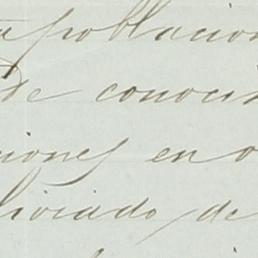 poblacion
de conoci
iones en o
liviado, de